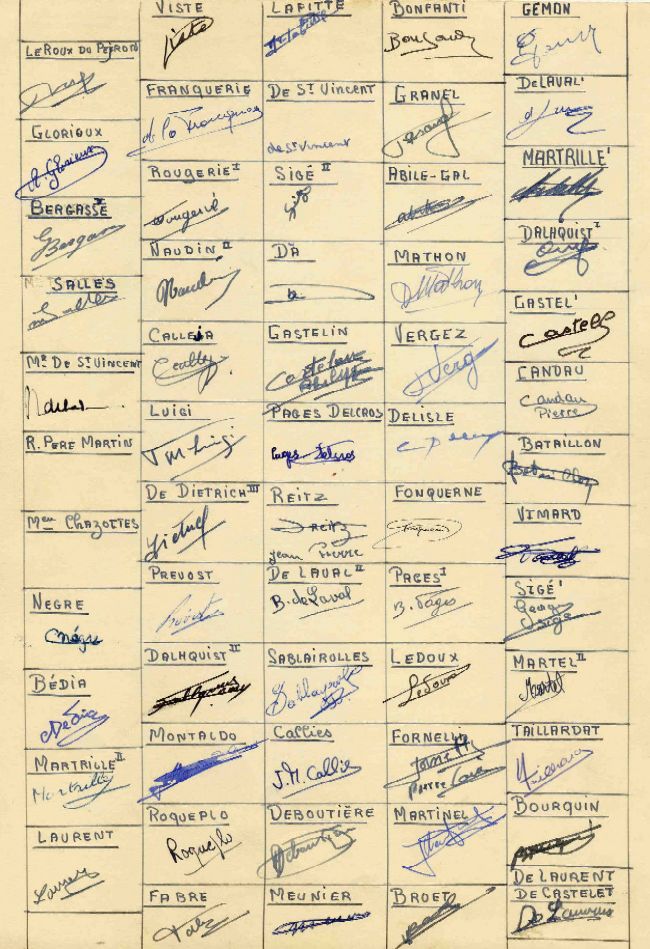 LEROUX DU PEYROU
GLORIOUX
A. Glorieux
BERGASSE I
Bergasse
SALLES
Salles
MR DE ST VINCENT
R. PERE MARTIN
Meur CHAZOTTES
NEGRE
Nègre
BÉDIA
Bédia
MARTRILLE II
Martrille
LAURENT
Laurent
VISTE
Viste
FRANQUERIE
de la Franquerie
ROUGERIE I
Rougerié
NAUDIN II
Naudin
CALLEJA
LUIGI
Luigi
DE DIETRICH III
PREVOST
DALHQUIST II
MONTALDO
ROQUEPLO
Roqueplo
FABRE
LAFITTE
DE ST VINCENT
de St Vincent
SIGÉ II
DA
GASTELIN
PAGES DELCROS
Pages Delcros
REITZ
Reitz
Jean Pierre
DE LAVAL II
B. de Laval
SABLAIROLLES
CALLIES
J.M. Callies
DEBOUTIÈRE
Deboutière
MEUNIER
BONFANTI
GRANEL
ABILE-GAL
MATHON
Mathon
VERGEZ
Verg
DELISLE
FONQUERNE
PAGES I
B. Pages
LEDOUX
Ledoux
FORNELLI
MARTINEL
BROET
GEMON
DELAVAL I
MARTRILLE I
DALHQUIST I
CASTEL I
Castell
CANDAU
Candau
Pierre
BATAILLON
VIMARD
SIGÉ I
MARTEL II
Martel
TAILLARDAT
BOURQUIN
DE LAURENT
DE CASTELET